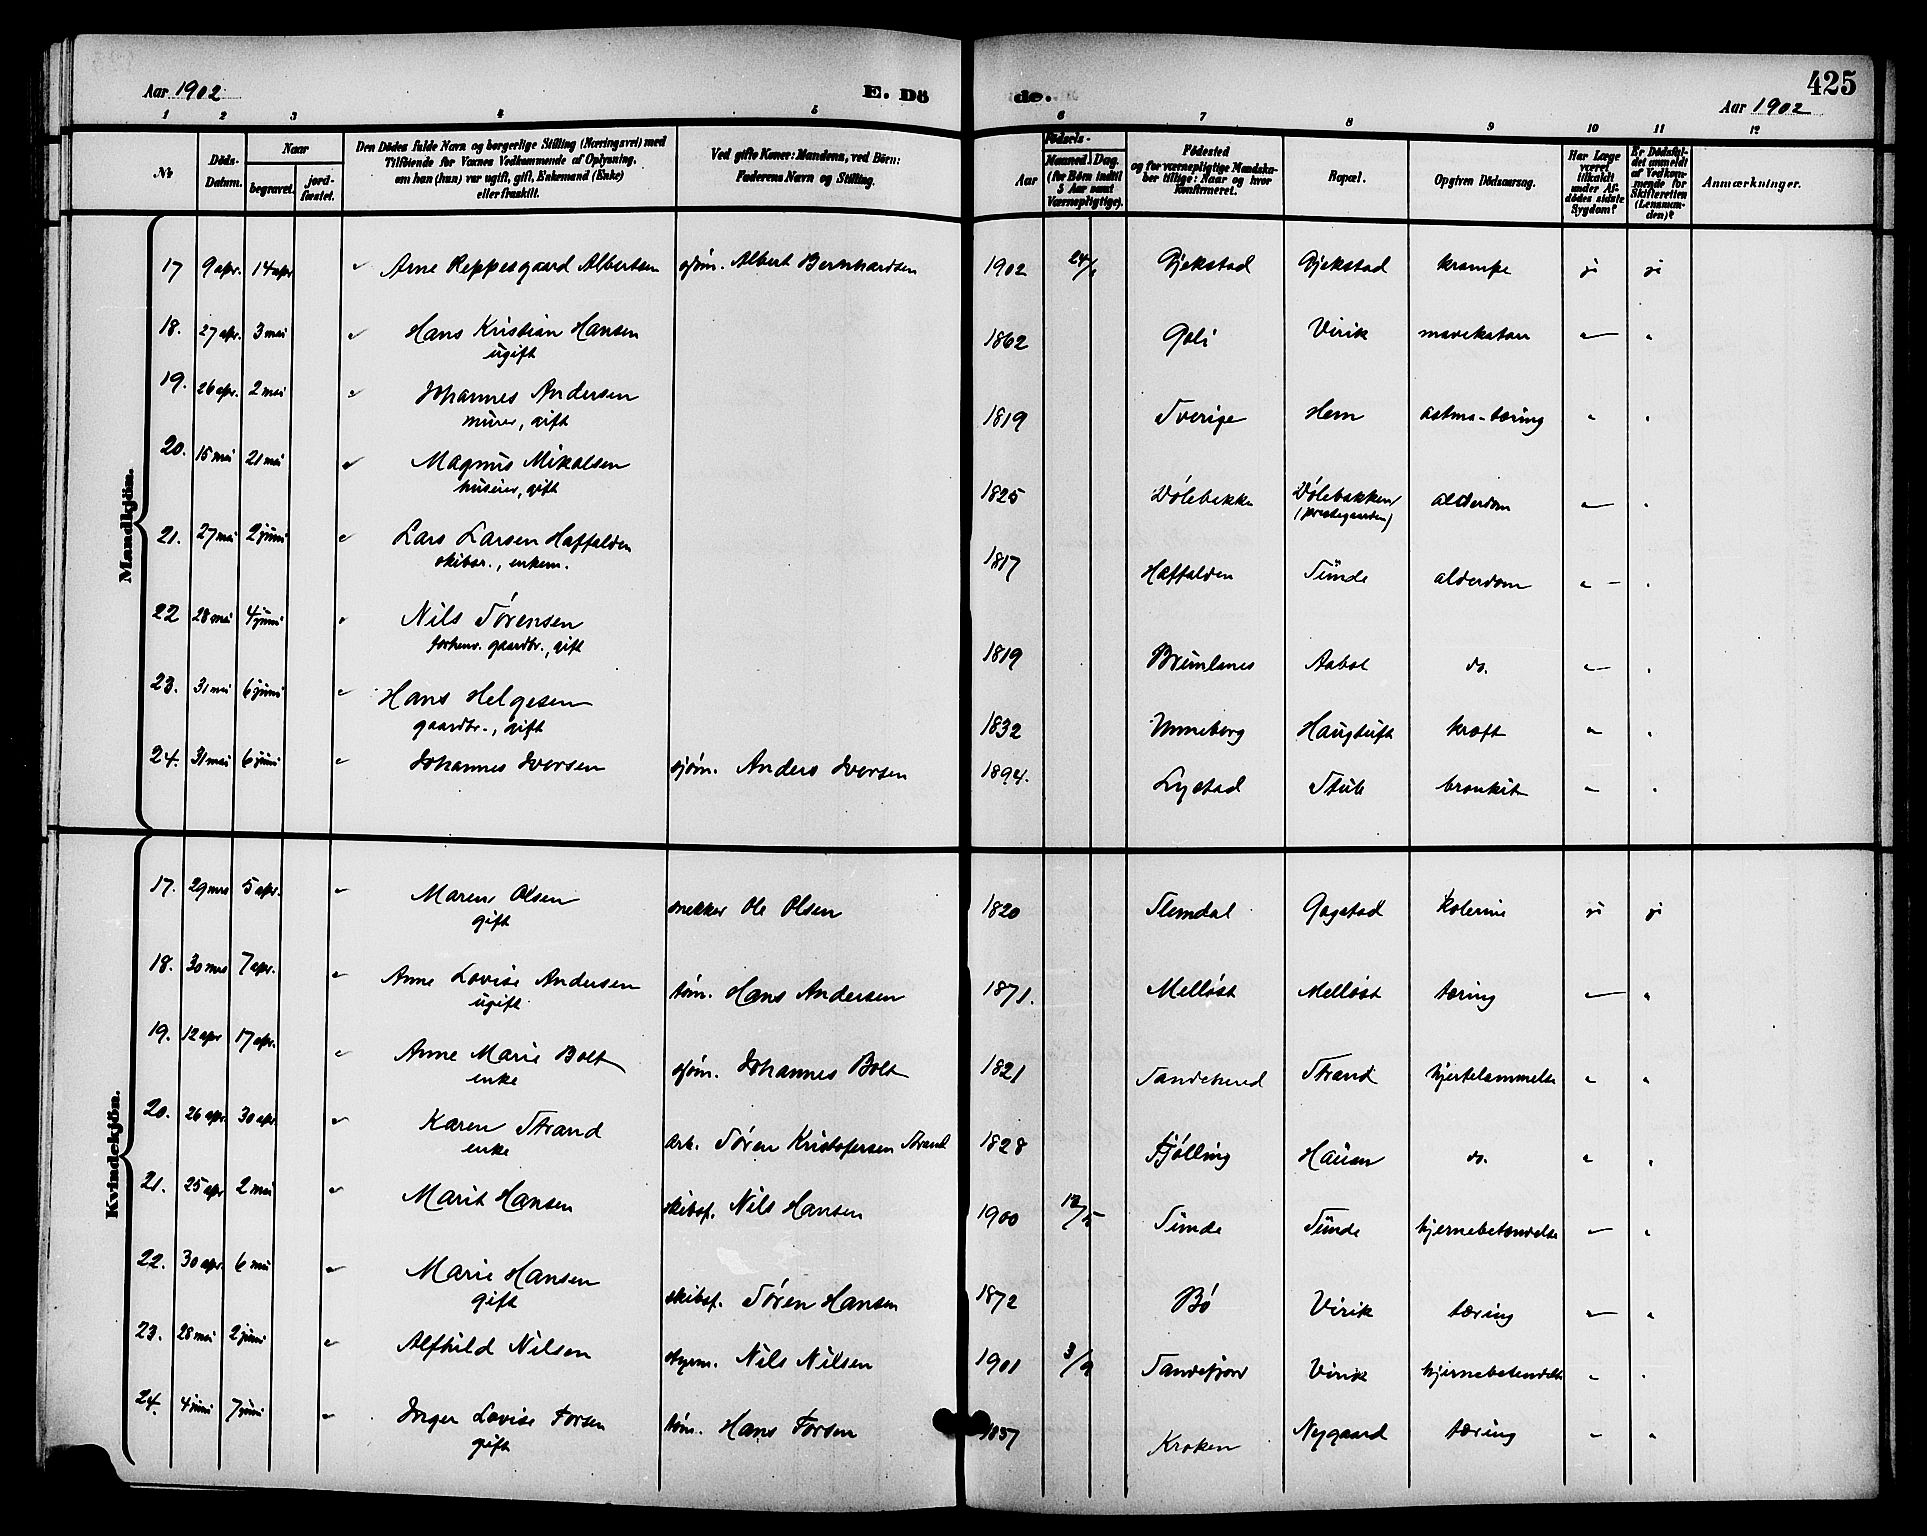 425
Aar 1902 E. Dö de. Aar 1902
1 2 3 4 5 6 7 8 9 10 11 12
No Döds-Datum. Naar begravet. jord-fæstet. Den Dödes fulde Navn og borgerlige Stilling (Næringsvei) med Tilföiende for Voxnes Vedkommende af Oplysning, om han (hun) var ugift, gift, Enkemand (Enke) eller fraskilt. Ved gifte Koner: Mandens, ved Börn: Faderens Navn og Stilling. Födsels- Aar Maaned. Dag. (for Börn indtil 5 Aar samt Værnepligtige). Födested og for værnepligtige Mandskaber tillige: Naar og hvor konfirmeret. Bopæl. Opgiven Dödsaarsag. Har Læge været tilkaldt under Afdödes sidste Sygdom? Er Dödsfaldet anmeldt af Vedkommende for Skifteretten (Lensmanden)? Anmærkninger.
Mandkjön.
17 9 apr. 14 apr Arne Reppesgaard Albertsen sjøm. Albert Bernhardsen 1902 24/1 Gjekstad Gjekstad krampe ja ja
18. 27 apr. 3 mai Hans Kristian Hansen 1862 Goli Virik mavekatar " "
ugift
19. 26 apr. 2 mai Johannes Andersen 1819 Sverige Hem astma-tæring " "
murer, gift
20. 15 mai 21 mai Magnus Mikalsen 1825 Dølebakken Dølebakken (prestegaarden) alderdom " "
huseier, gift
21. 27 mai 2 juni Lars Larsen Haffalden 1817 Haffalden Sunde alderdom " "
skibsr., enkem.
22 28 mai 4 juni Nils Sørensen 1819 Brunlanes Aabol do. " "
forhenv. gaardbr., gift
23. 31 mai 6 juni Hans Helgesen 1832 Unneberg Haugtuft kræft " "
gaardbr., gift
24. 31 mai 6 juni Johannes Iversen sjøm. Anders Iversen 1894. Lystad Stub bronkit " "
Kvindekjön.
17. 29 mrs 5 apr. Maren Olsen snekker Ole Olsen 1820 Slemdal Gogstad kolerine ja ja
gift
18. 30 mrs 7 apr. Anne Lovise Andersen tøm. Hans Andersen 1871. Melløst Melløst tæring " "
ugift
19. 12 apr 17 apr. Anne Marie Bolt sjøm. Johannes Bolt 1821 Sandeherred Strand hjertelammelse " "
enke
20. 26 apr. 30 apr. Karen Strand arb. Søren Kristofersen Strand 1828 Tjølling Hauan do. " "
enke
21. 25 apr 2 mai Marit Hansen skibsf. Nils Hansen 1900 12/5 Sunde Sunde hjernebetændelse " "
22. 30 apr. 6 mai Marie Hansen skibsf. Søren Hansen 1872 Bø Virik tæring " "
gift
23. 28 mai 2 juni Alfhild Nilsen styrm. Nils Nilsen 1901 3/9 Sandefjord Virik hjernebetændelse " "
24. 4 juni 7 juni Inger Lovise Forsen tøm. Hans Forsen 1857 Kroken Nygaard tæring " "
gift